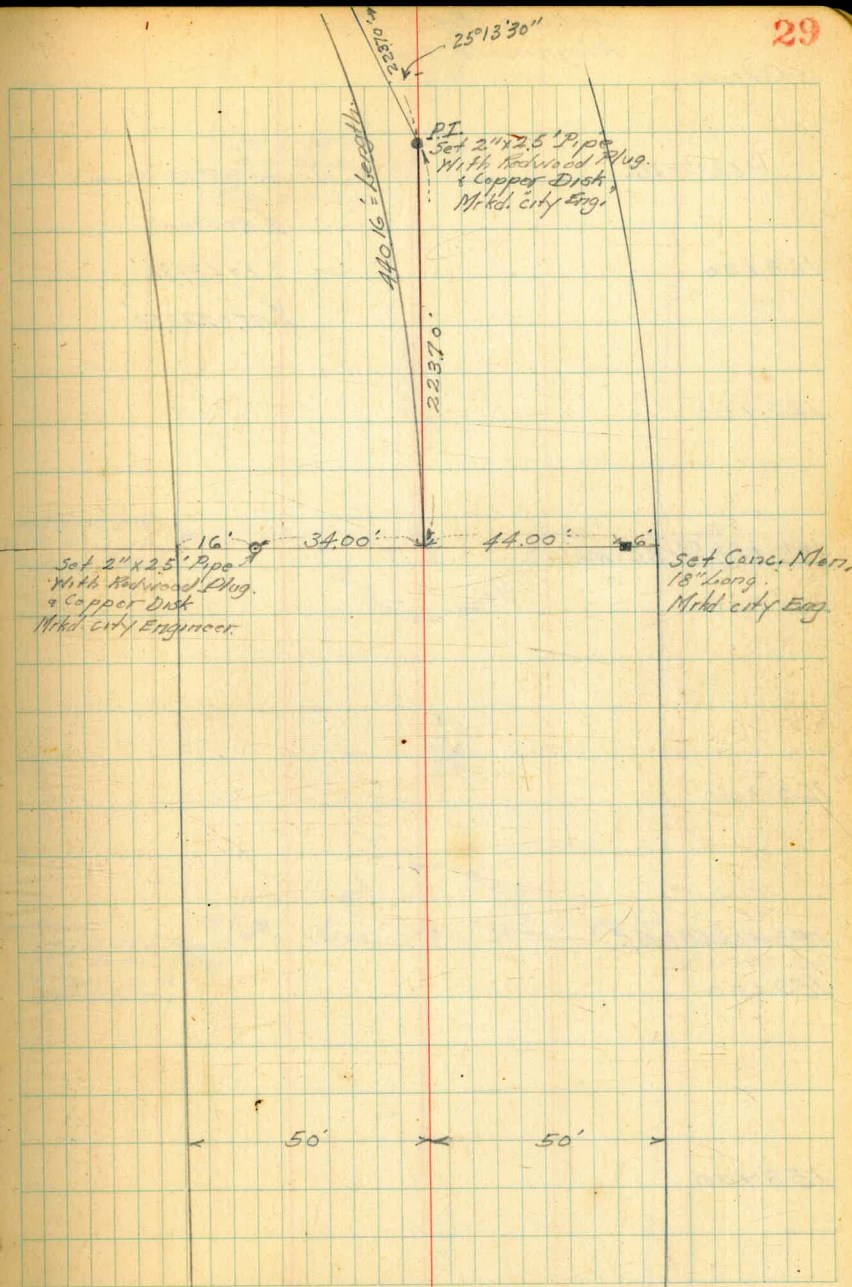 29
25°13'30"
223.70'
P.I.
Set 2"x2.5' Pipe
With Redwood Plug.
& Copper Disk
Mrkd. City Eng.
440.16' = Length.
223.70'
16' 34.00' 44.00' 6'
Set 2"x2.5' Pipe
With Redwood Plug.
& Copper Disk
Mrkd City Engineer.
Set Conc. Mon,
18" Long.
Mrkd City Eng.
50' 50'